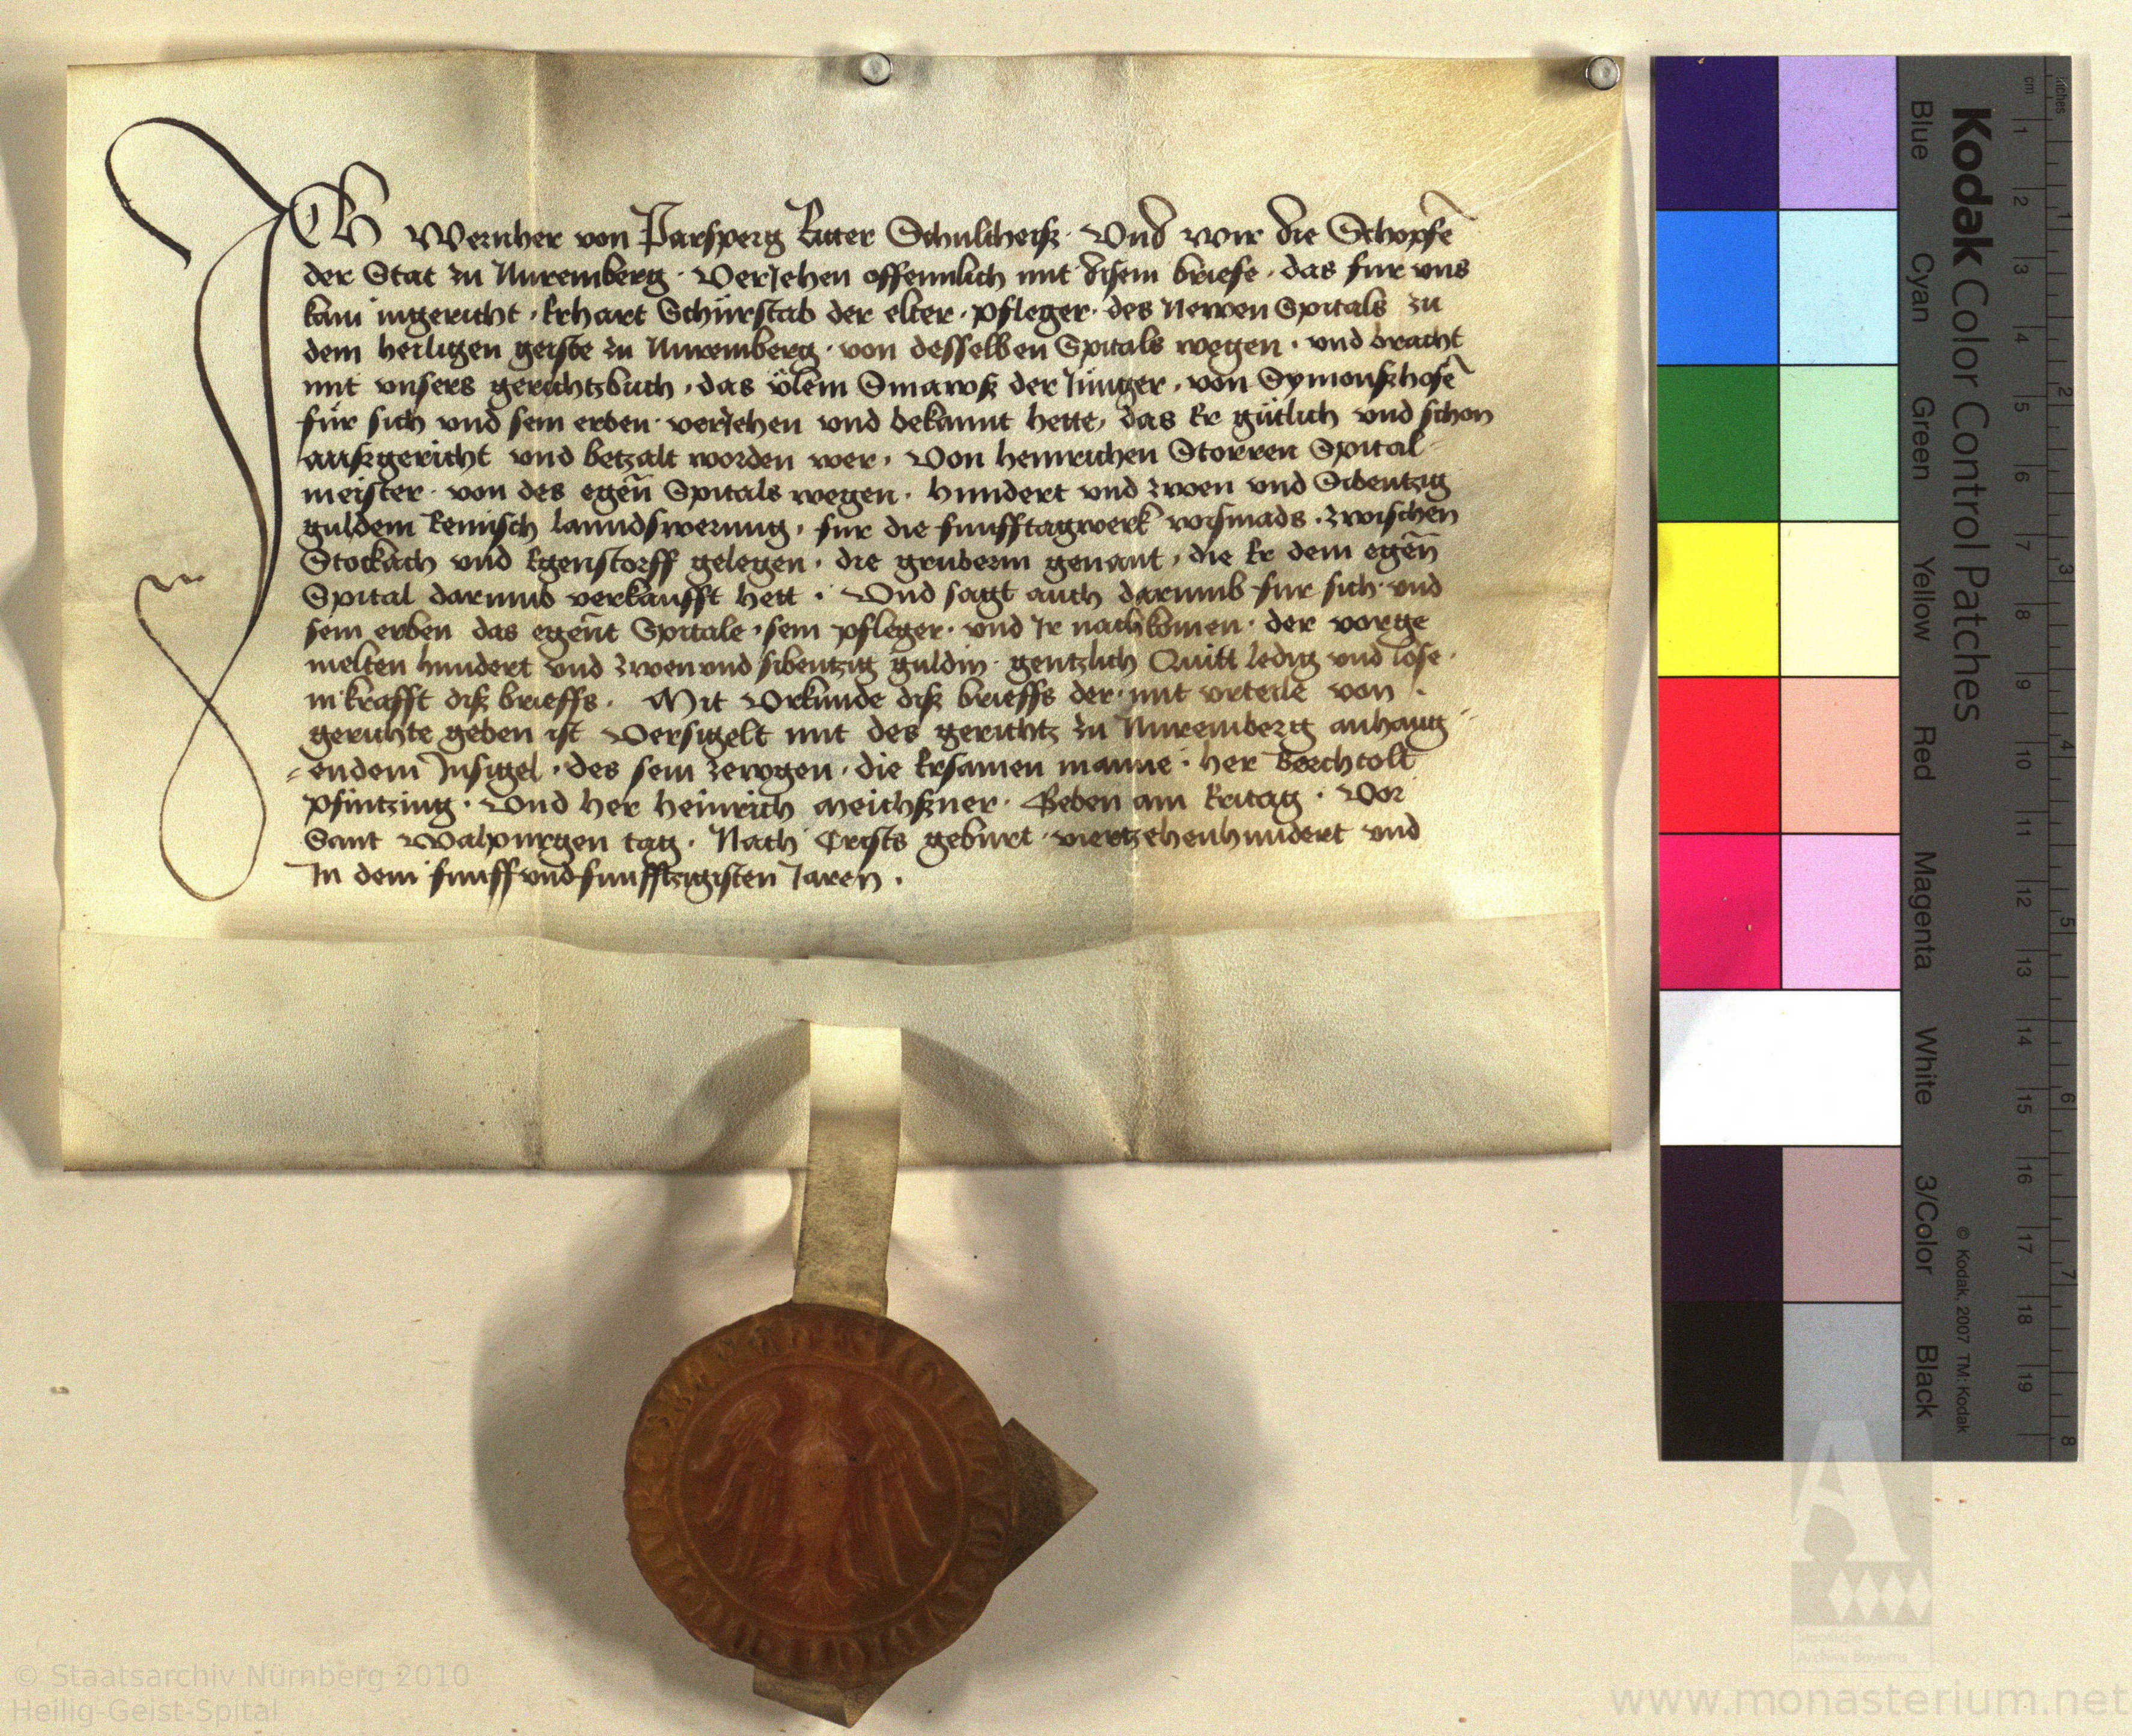 Ich Wernher von Parsperg Ritter Schultheiß · Vnd wir die Schopfē
der Stat zu Nuremberg · Veriehen offennlich mit disem briefe · das fur vns
kam ingericht · Erhart Schürstab der elter · pfleger · des Newen Spitals zu
dem heiligen geiste zu Nuremberg · von desselben Spitals wegen · vnd bracht
mit vnsers gerichtzbuch · das ölem Smawß der Jünger · von Symonßhofē
für sich vnd sein erben · veriehen vnd bekannt hette, das Er gütlich vnd schon
außgericht vnd betzalt worden wer · Von heinrichen Storren Spital-
meister · von des egen̄ Spitals wegen · hundert vnd zwen vnd Sibentzig
guldein Reinisch lanndswerung · für die funff tagwerk wismads · zwischen
Stockach vnd Egenstorff gelegen · die gruberin genant · die Er dem egen̄
Spital darumb verkaufft hett · Vnd sagt auch darumb fur sich vnd
sein erben das egen̄t Spitale · sein pfleger · vnd Ir nachkomen · der vorge
melten hundert vnd zwen vnd sibentzig guldin · gentzlich Quitt ledig vnd lose ·
in krafft diß brieffs · Mit Vrkunde diß brieffs der · mit vrteile von ·
gerichte geben ist Versigelt mit des gerichtz zu Nuremberg anhang-
-endem Insigel · des sein zewgen · die Ersamen manne · her Berchtolt
Pfintzing · Vnd her heinrich Meichßner · Geben am Fritag · Vor
Sant Walpurgen tag · Nach Crists geburt · viertzehenhundert vnd
In dem funff vnd funfftzigisten Jaren ·
Kodak Color Control Patches
Blue Cyan Green Yellow Red Magenta White 3/Color Black
© Kodak, 2007 TM: Kodak
cm 1 2 3 4 5 6 7 8 9 10 11 12 13 14 15 16 17 18 19
inches 1 2 3 4 5 6 7 8
© Staatsarchiv Nürnberg 2010
Heilig-Geist-Spital
Staatliche
Archive Bayerns
www.monasterium.net